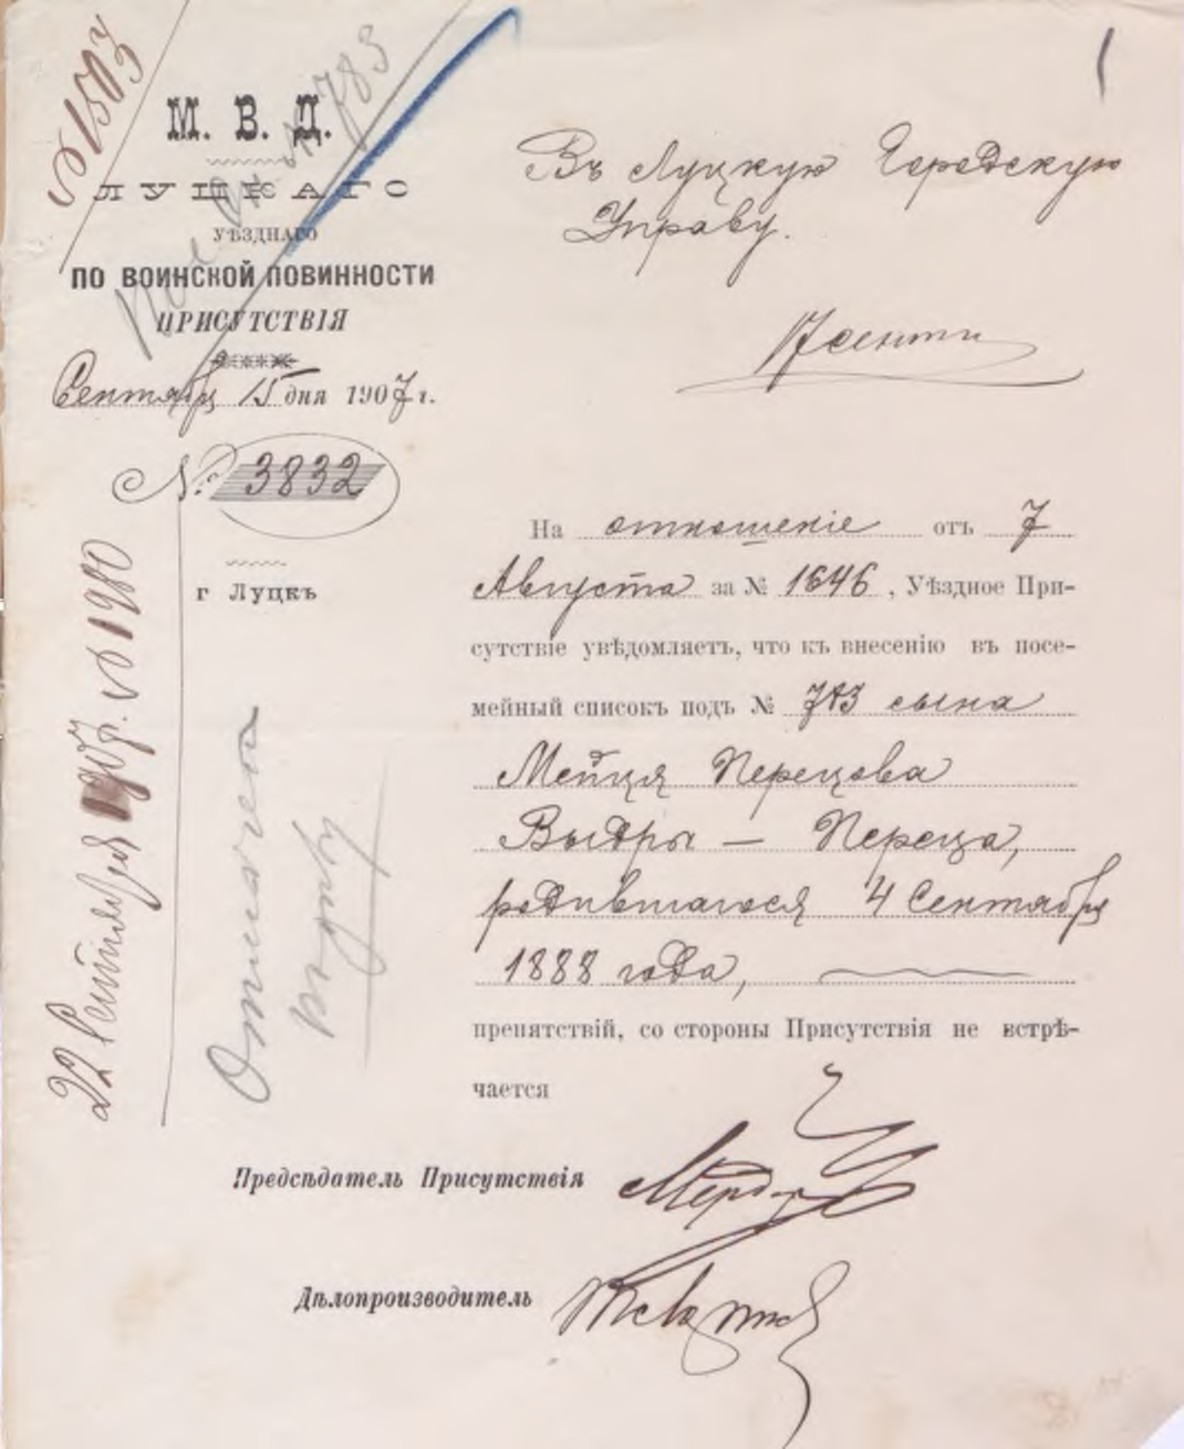 № 1503
М. В. Д.
ЛУЦКАГО
УѢЗДНАГО
ПО ВОИНСКОЙ ПОВИННОСТИ
ПРИСУТСТВІЯ
Сентября 15 дня 1907 г.
№ 3832
г Луцкъ
783
Въ Луцкую Городскую
Управу.
На отношеніе отъ 7
Августа за № 1646, Уѣздное При-
сутствіе увѣдомляетъ, что къ внесенію въ посе-
мейный списокъ подъ № 783 сына
Мейця Перецова
Выдры — Переца,
родившагося 4 Сентября
1888 года,
препятствій, со стороны Присутствія не встрѣ-
чается
Предсѣдатель Присутствія
Дѣлопроизводитель
22 Сентября 1907 г. № 1980